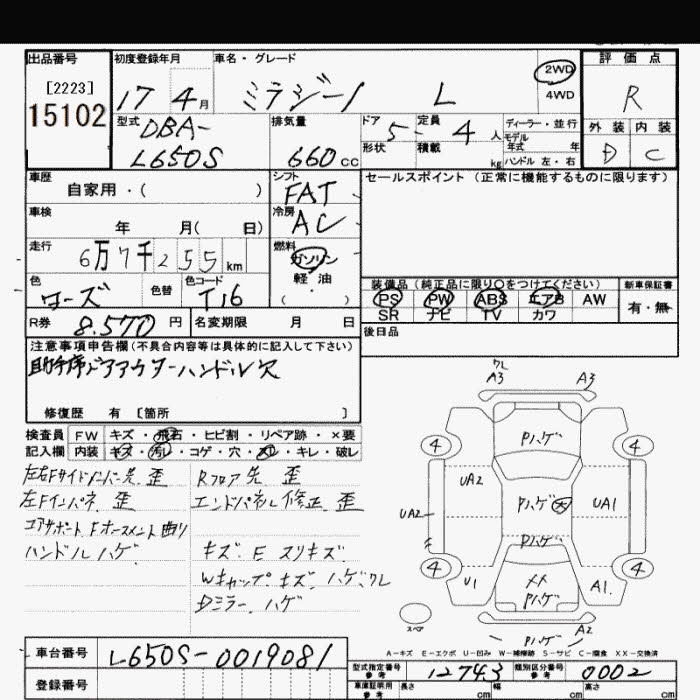 出品番号 初度登録年月 車名・グレード 評価点
[2223]
15102
17 4月 ミラジーノ L 2WD 4WD R
型式 DBA-L650S 排気量 660cc ドア 5 定員 4人 ディーラー・並行 外装 内装
形状 積載 kg モデル年式 年 D C
ハンドル 左・右
車歴 自家用・( ) シフト FAT セールスポイント (正常に機能するものに限ります)
車検 年 月( 日) 冷房 AC
走行 6万7千255km 燃料 ガソリン
軽油
( ・ )
色 ローズ 色替 色コード T16 装備品 (純正品に限り○をつけてください) 新車保証書
PS PW ABS エアB AW 有・無
SR ナビ TV カワ
R券 8.570円 名変期限 月 日 後日品
注意事項申告欄(不具合内容等は具体的に記入して下さい)
助手席ドアアウターハンドル欠
修復歴 有 [箇所 ]
検査員 FW キズ・飛石・ヒビ割・リペア跡・×要
記入欄 内装 キズ・汚レ・コゲ・穴・スレ・キレ・破レ
左右Fサイドメンバー先 歪 Rフロア先 歪
左Fインパネ 歪 エンドパネル修正 歪
コアサポート Fホースメント 曲リ
ハンドルハゲ キズ E スリキズ
Wキャップ キズ ハゲ、ワレ
Dミラー ハゲ
ワレ
A3 A3
Pハゲ
4 4
UA2
Pハゲ 大 UA1
UA2
Pハゲ
4 4
U1 XX Pハゲ A1
スペア
Pハゲ A2
A-キズ E-エクボ U-凹み W-補修跡 S-サビ C-腐食 XX-交換済
車台番号 L650S-0019081 型式指定番号 参考 12743 類別区分番号 参考 0002
登録番号 車庫証明用 参考 長さ cm 幅 cm 高さ cm